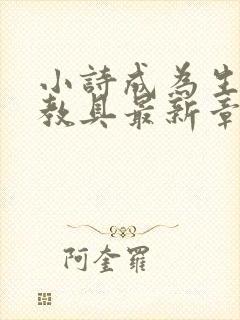 小詩成為生
教具最新章
阿奎羅